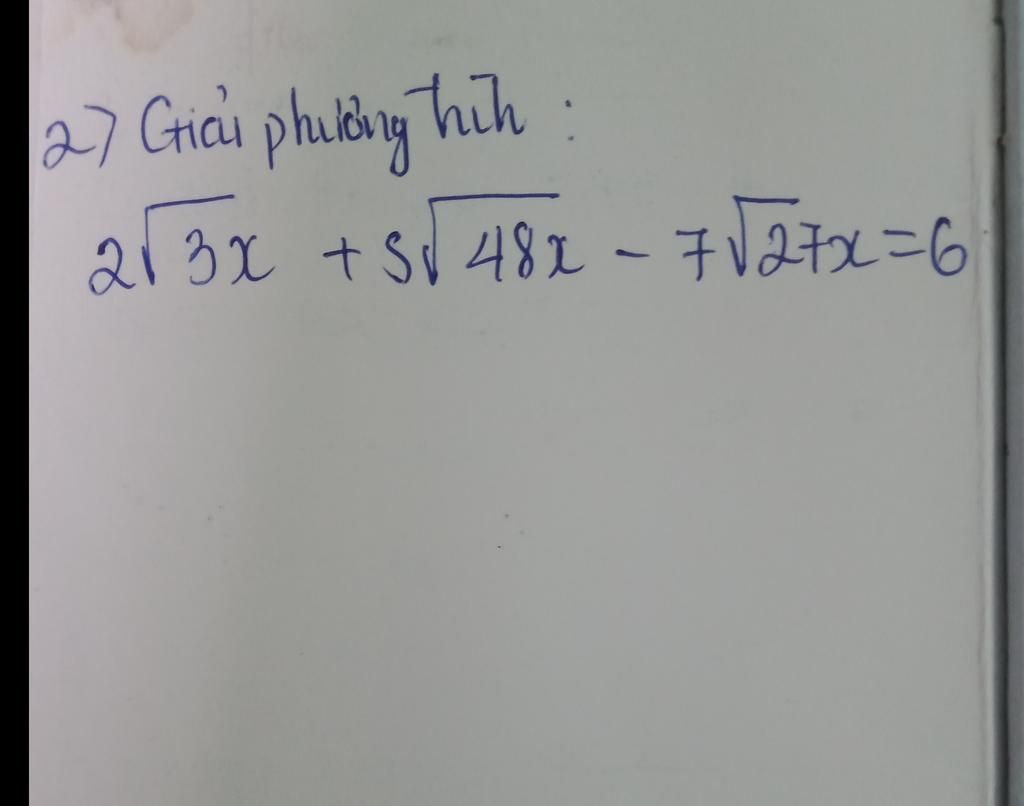 2) Giải phương trình :
2√3x + 5√48x - 7√27x = 6